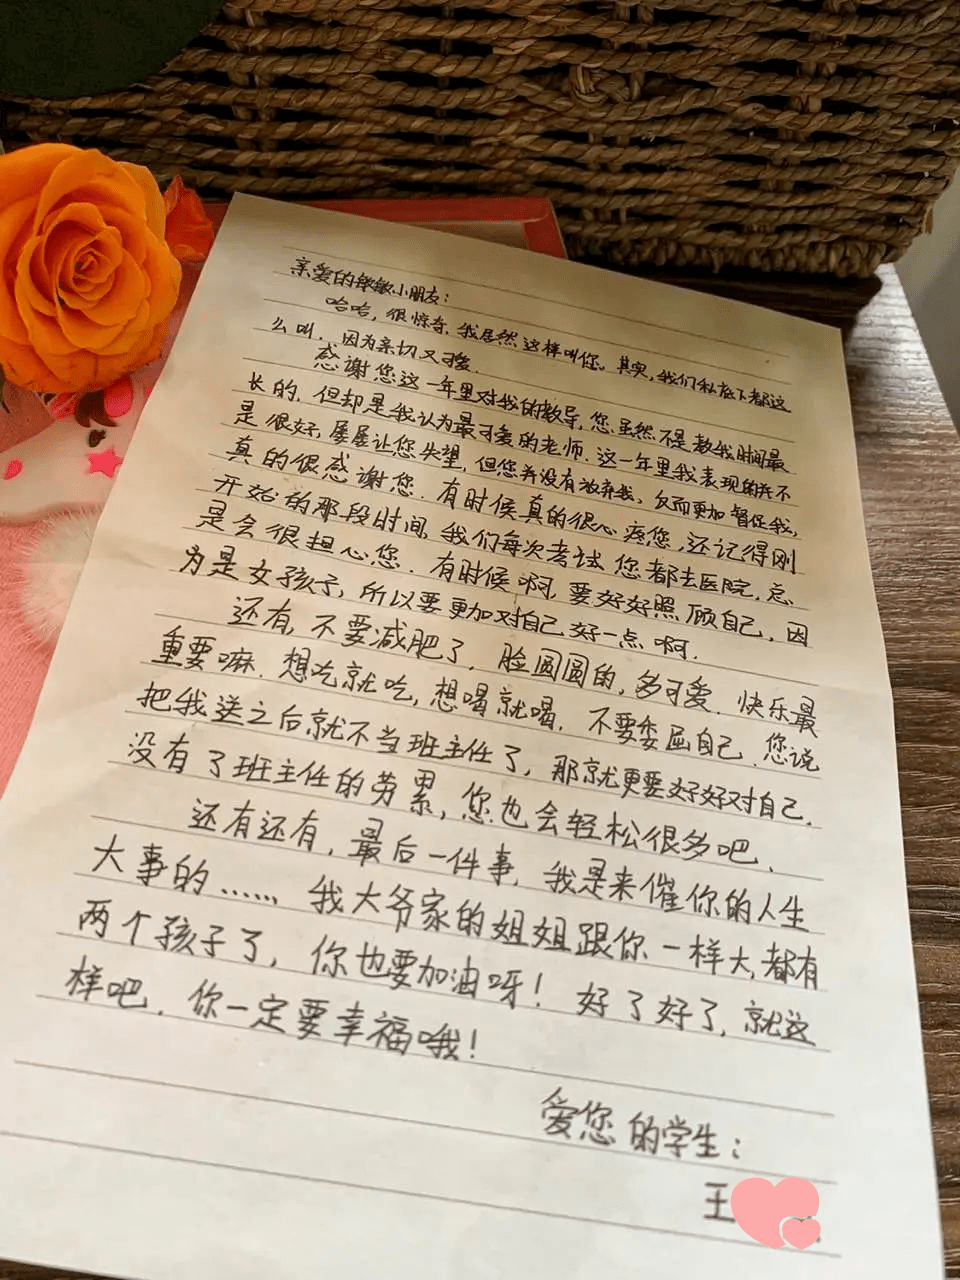 亲爱的敏敏小朋友：
哈哈，很惊奇，我居然这样叫您。其实，我们私底下都这
么叫，因为亲切又可爱.
感谢您这一年里对我的教导，您虽然不是教我时间最
长的，但却是我认为最可爱的老师.这一年里我表现的并不
是很好，屡屡让您失望，但您并没有放弃我，反而更加督促我，
真的很感谢您.有时候真的很心疼您，还记得刚
开始的那段时间，我们每次考试您都去医院，总
是会很担心您.有时候啊，要好好照顾自己，因
为是女孩子，所以要更加对自己好一点啊.
还有，不要减肥了，脸圆圆的，多可爱.快乐最
重要嘛.想吃就吃，想喝就喝.不要委屈自己.您说
把我送之后就不当班主任了，那就更要好好对自己.
没有了班主任的劳累，您也会轻松很多吧.
还有还有，最后一件事，我是来催你的人生
大事的……我大爷家的姐姐跟你一样大，都有
两个孩子了，你也要加油呀！好了好了，就这
样吧.你一定要幸福哦！
爱您的学生：
王